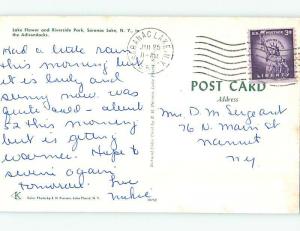 Lake Flower and Riverside Park, Saranac Lake, N. Y., in
the Adirondacks.
Had a little rain
this morning but
it is lovely and
sunny now. was
quite cold - about
52 this morning
but is getting
warmer. Hope to
swim again
tomorrow. Love
SARANAC LAKE, N.Y.
U.S. POSTAGE
3¢
LIBERTY
POST CARD
Address
Mr. D. M. Sergeant
76 N. Main St
Nanuet
NY
K